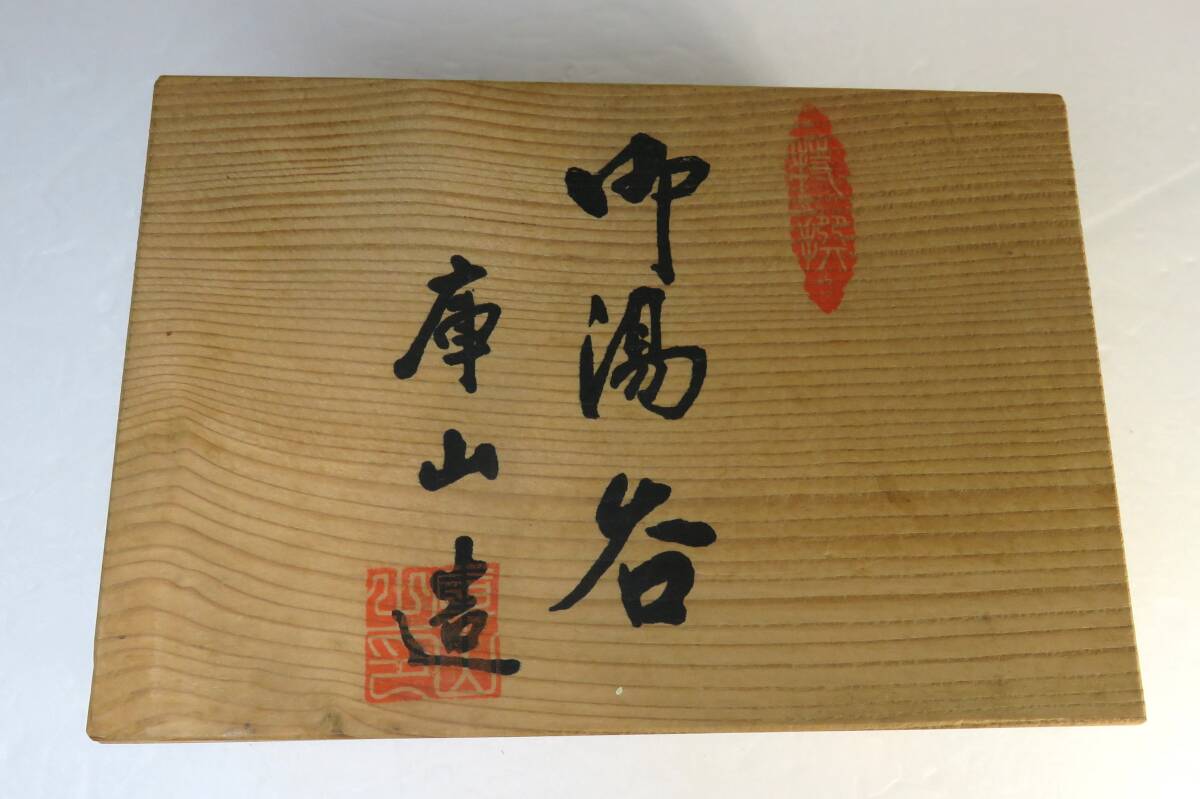 御湯呑
庫山造